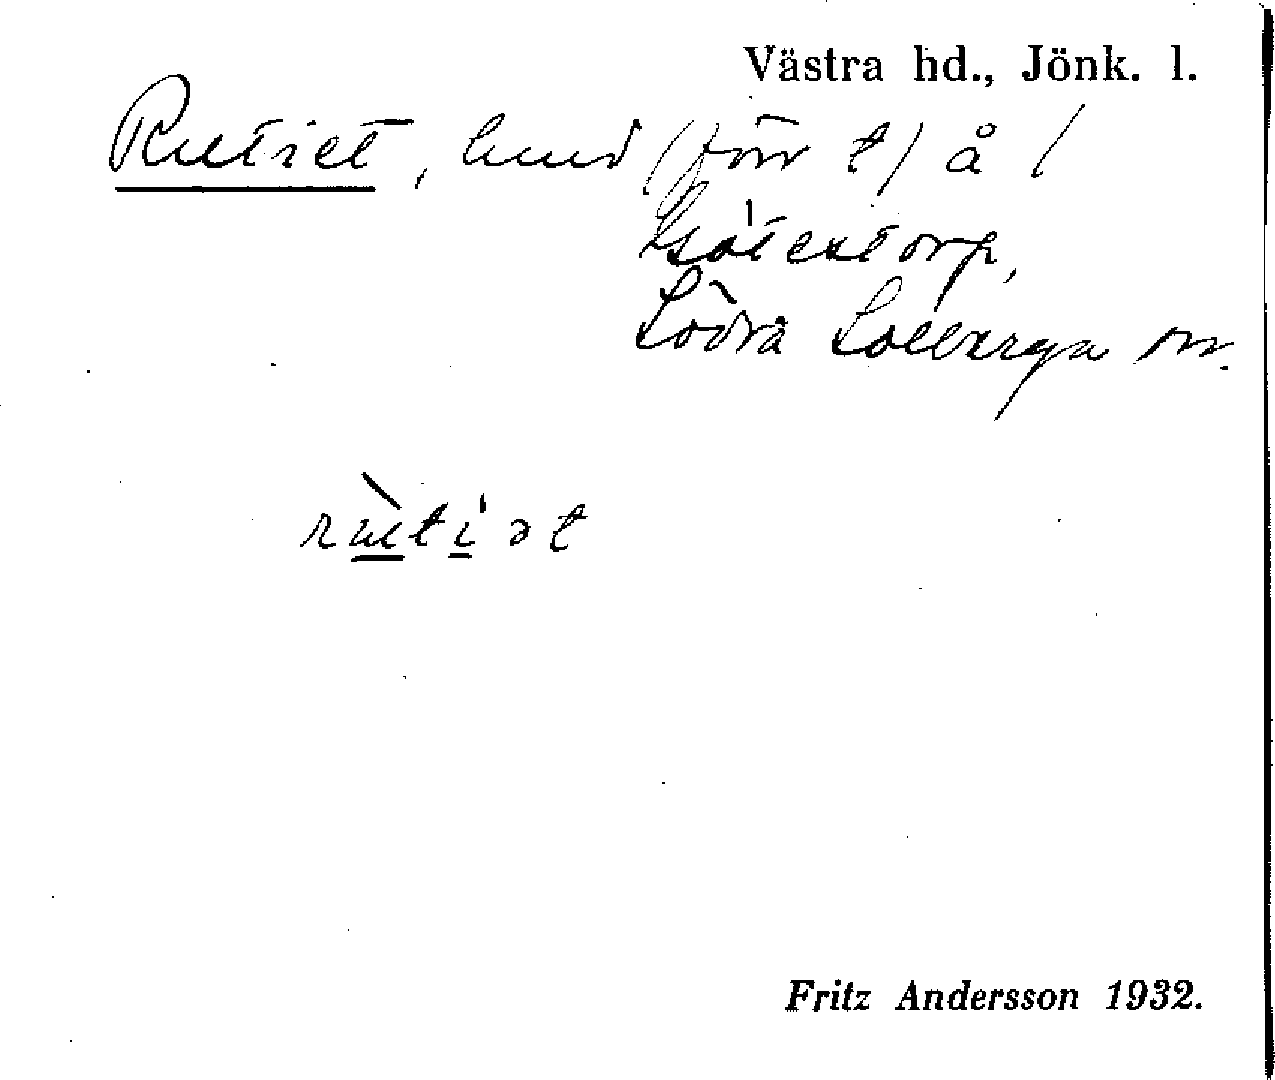 Västra hd., Jönk. l.
Rutiet, lund (förr t) å /
Götestorp,
Södra Solberga sn.
rutiət
Fritz Andersson 1932.